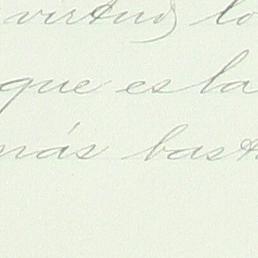 virtud, lo
que es la
más basta